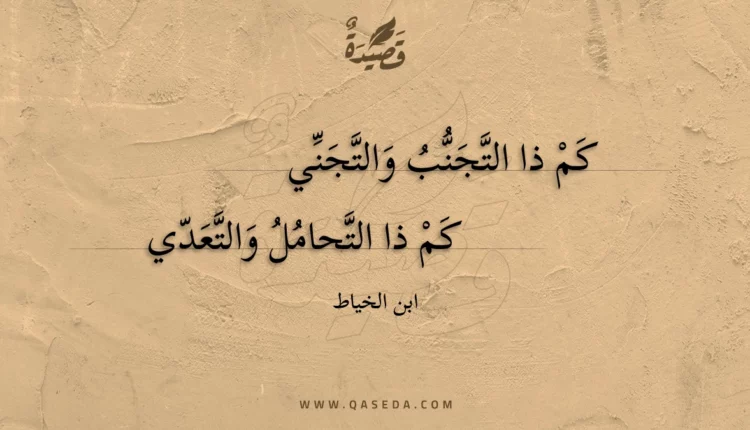 قَصِيْدَةٌ
كَمْ ذا التَّجَنُّبُ وَالتَّجَنِّي
كَمْ ذا التَّحامُلُ وَالتَّعَدّي
ابن الخياط
WWW.QASEDA.COM